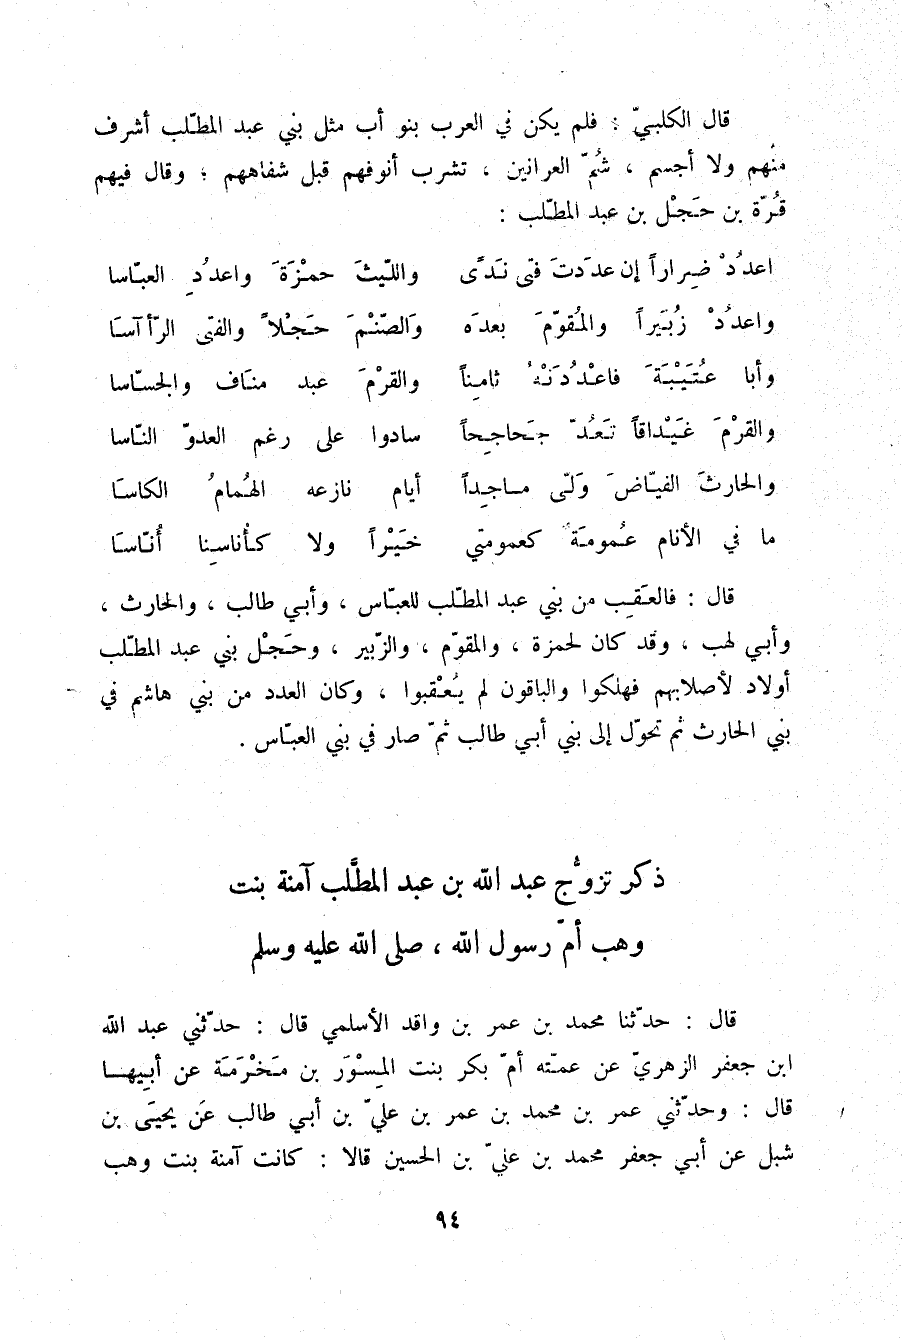 قال الكلبيّ : فلم يكن في العرب بنو أب مثل بني عبد المطّلب أشرف
منهم ولا أجسم ، شُمّ العرانين ، تشرب أنوفهم قبل شفاههم ؛ وقال فيهم
قُرّة بن حَجْل بن عبد المطّلب :
اعدُدْ ضِراراً إن عدَدتَ فتى نَدًى واللّيثَ حمْزَةَ واعدُدِ العبّاسا
واعدُدْ زُبَيراً والمُقوّمَ بعدَه وَالصّتْمَ حَجْلاً والفتى الرّأآسَا
وأبا عُتَيْبَةَ فاعْدُدَنْهُ ثامِناً والقرْمَ عبد منَاف والجسّاسا
والقرْمَ غَيْداقاً تَعُدّ جَحاجِحاً سادوا على رغم العدوّ النّاسا
والحارثَ الفيّاضَ وَلّى ماجِداً أيام نازعه الهُمامُ الكاسَا
ما في الأنام عُمومَةٌ كعمومتي خَيْراً ولا كأُناسِنا أُنّاسَا
قال : فالعَقِب من بني عبد المطّلب للعبّاس ، وأبي طالب ، والحارث ،
وأبي لهب ، وقد كان لحمزة ، والمقوّم ، والزّبير ، وحَجْل بني عبد المطّلب
أولاد لأصلابهم فهلكوا والباقون لم يُعْقبوا ، وكان العدد من بني هاشم في
بني الحارث ثم تحوّل إلى بني أبي طالب ثمّ صار في بني العبّاس .
ذكر تزوُّج عبد الله بن عبد المطَّلب آمنة بنت
وهب أمّ رسول الله ، صلى الله عليه وسلم
قال : حدّثنا محمد بن عمر بن واقد الأسلمي قال : حدّثني عبد الله
ابن جعفر الزهريّ عن عمّته أمّ بكر بنت المِسْوَر بن مَخْرَمَة عن أبيها
قال : وحدّثني عمر بن محمد بن عمر بن عليّ بن أبي طالب عَن يحيَى بن
شبل عن أبي جعفر محمد بن عليّ بن الحسين قالا : كانت آمنة بنت وهب
٩٤